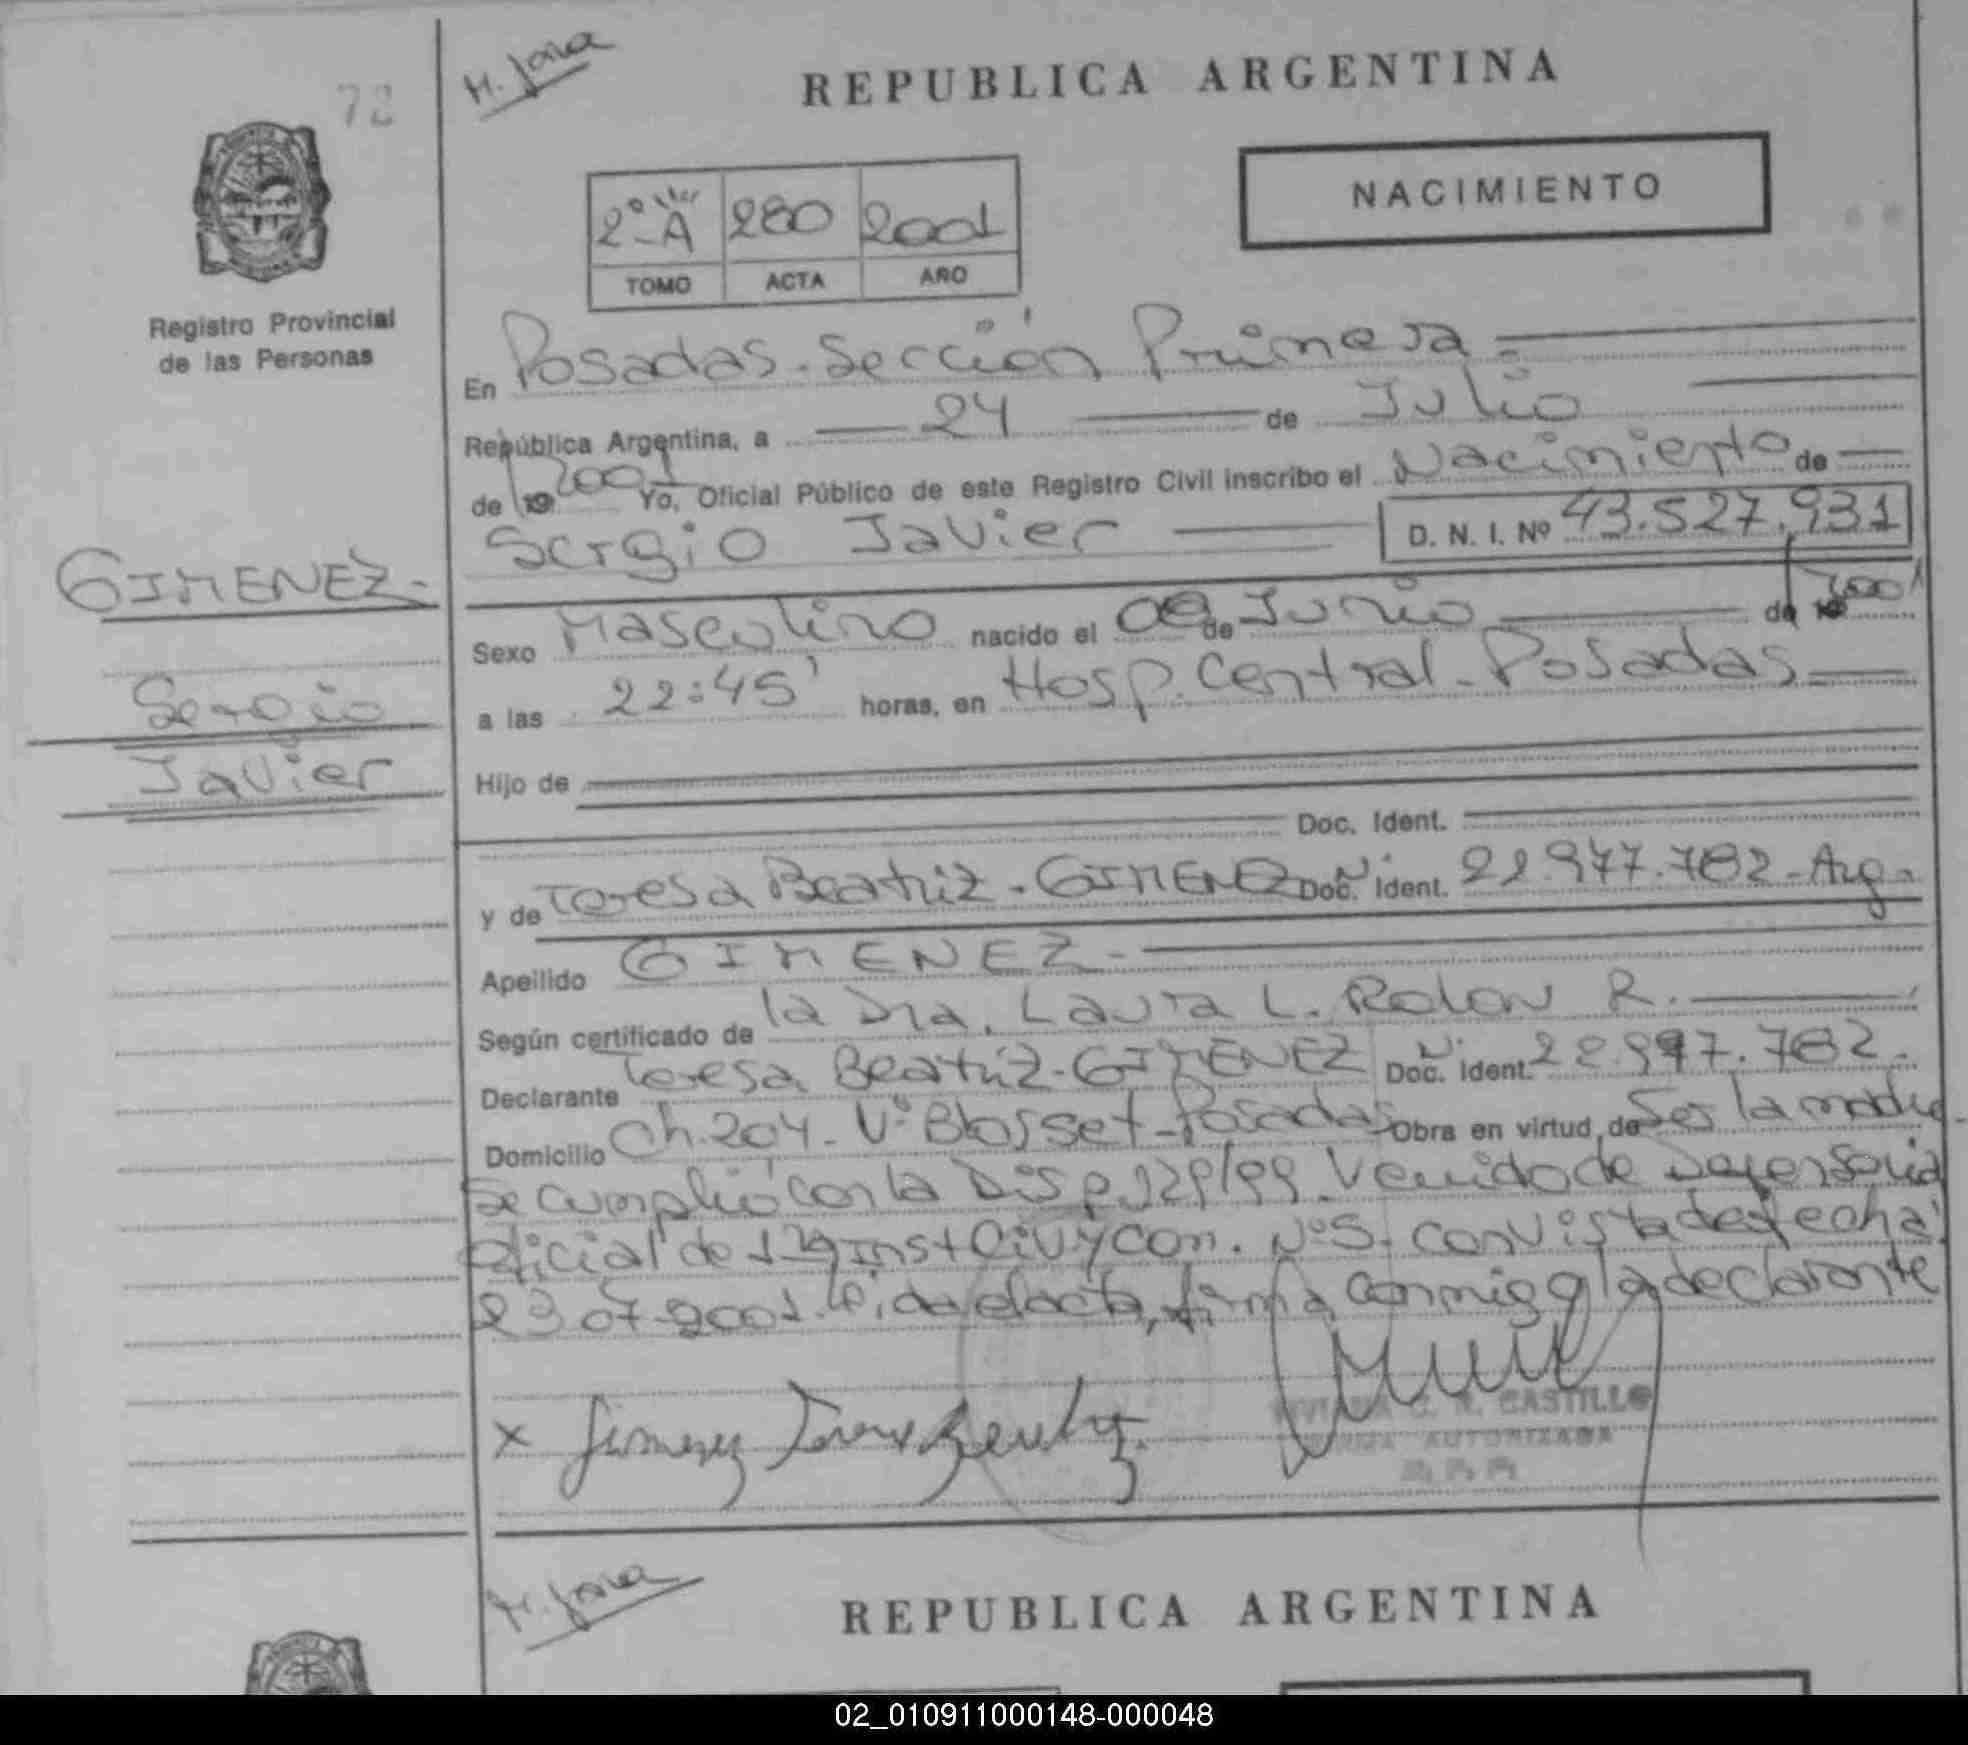 72
H. Jara
REPUBLICA ARGENTINA
NACIMIENTO
2º A 280 2001
TOMO ACTA AÑO
Registro Provincial
de las Personas
En Posadas - Sección Primera.
República Argentina, a 24 de Julio
de 19 2001 Yo, Oficial Público de este Registro Civil inscribo el Nacimiento de
Sergio Javier D. N. I. Nº 43.527.931
GIMENEZ.-
Sergio
Javier
Sexo Masculino nacido el de Junio de 19
a las 22:45' horas, en Hosp. Central - Posadas
Hijo de
Doc. Ident.
y de Teresa Beatriz - GIMENEZ Doc. Ident. 22.977.782 - Arg.
Apellido GIMENEZ.-
Según certificado de la Dra. Laura L. Rolon R.
Declarante Teresa Beatriz - GIMENEZ Doc. Ident. 22.977.782.
Domicilio Ch. 204 - Vº Blosset - Posadas Obra en virtud de Ser la madre
Se cumplió con la Disp. 129/99. Venido de Defensoria
Oficial de 1ra Inst Civ y Com. Nº 5. con vista de fecha
23-07-2001. Leida el acta, firma conmigo la declarante
x Gimenez Teresa Beatriz.
C. R. CASTILLO
FIRMA AUTORIZADA
H. Jara
REPUBLICA ARGENTINA
02_010911000148-000048